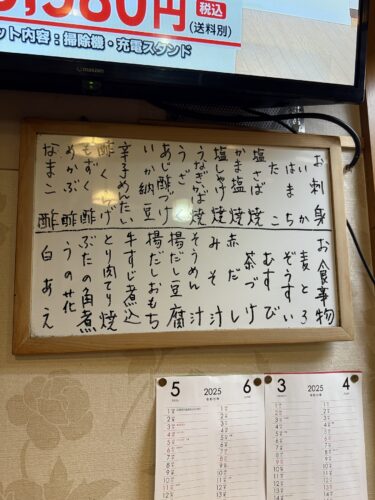 円
税込
(送料別)
ット内容：掃除機・充電スタンド
お刺身
いか
はまち
たこ
塩さば焼
かま塩焼
塩しゃけ焼
うなぎかば焼
うざく
あじ酢づけ
いか納豆
辛子めんたい
酢くらげ
もずく酢
めかぶ酢
なまこ酢
お食事物
麦とろ
ぞうすい
むすび
茶づけ
赤だし
みそ汁
そうめん汁
揚だし豆腐
揚だしおもち
牛すじ煮込
とり肉てり焼
ぶたの角煮
うの花
白あえ
5 2025 6
3 2025 4